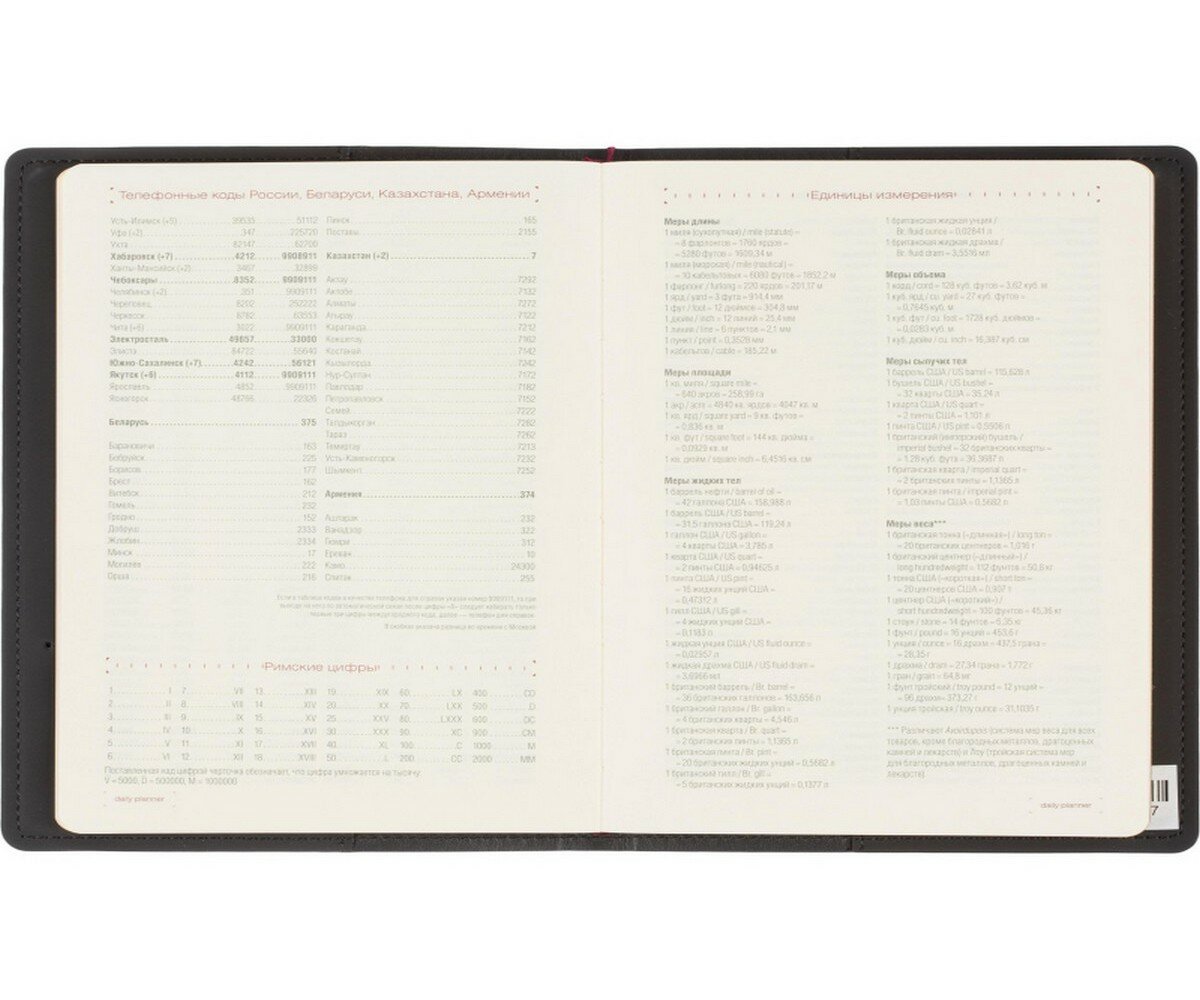 Телефонные коды России, Беларуси, Казахстана, Армении
Усть-Илимск (+5) 39535 51112
Уфа (+2) 347 225720
Ухта 82147 62700
Хабаровск (+7) 4212 9908911
Ханты-Мансийск (+2) 3467 32899
Чебоксары 8352 9909111
Челябинск (+2) 351 9909111
Череповец 8202 252222
Черкесск 8782 63553
Чита (+6) 3022 9909111
Электросталь 49657 33080
Элиста 84722 55640
Южно-Сахалинск (+7) 4242 56121
Якутск (+6) 4112 9909111
Ярославль 4852 9909111
Ясногорск 48766 22326
Беларусь 375
Барановичи 163
Бобруйск 225
Борисов 177
Брест 162
Витебск 212
Гомель 232
Гродно 152
Добруш 2333
Жлобин 2334
Минск 17
Могилев 222
Орша 216
Пинск 165
Поставы 2155
Казахстан (+2) 7
Актау 7292
Актобе 7132
Алматы 7272
Атырау 7122
Караганда 7212
Кокшетау 7162
Костанай 7142
Кызылорда 7242
Нур-Султан 7172
Павлодар 7182
Петропавловск 7152
Семей 7222
Талдыкорган 7282
Тараз 7262
Темиртау 7213
Усть-Каменогорск 7232
Шымкент 7252
Армения 374
Аштарак 232
Ванадзор 322
Гюмри 312
Ереван 10
Камо 24300
Спитак 255
Если в таблице кодов в качестве телефона для справок указан номер 9909111, то при
выходе на него по автоматической связи после цифры «8» следует набирать только
первые три цифры междугородного кода, далее — телефон для справок.
В скобках указана разница во времени с Москвой
Римские цифры
1 I 7 VII 13 XIII 19 XIX 60 LX 400 CD
2 II 8 VIII 14 XIV 20 XX 70 LXX 500 D
3 III 9 IX 15 XV 25 XXV 80 LXXX 600 DC
4 IV 10 X 16 XVI 30 XXX 90 XC 900 CM
5 V 11 XI 17 XVII 40 XL 100 C 1000 M
6 VI 12 XII 18 XVIII 50 L 200 CC 2000 MM
Поставленная над цифрой черточка обозначает, что цифра умножается на тысячу
V = 5000, D = 500000, M = 1000000
daily planner
Единицы измерения
Меры длины
1 миля (сухопутная) / mile (statute) =
= 8 фарлонгов = 1760 ярдов =
= 5280 футов = 1609,34 м
1 миля (морская) / mile (nautical) =
= 10 кабельтовых = 6080 футов = 1852,2 м
1 фарлонг / furlong = 220 ярдов = 201,17 м
1 ярд / yard = 3 фута = 914,4 мм
1 фут / foot = 12 дюймов = 304,8 мм
1 дюйм / inch = 12 линий = 25,4 мм
1 линия / line = 6 пунктов = 2,1 мм
1 пункт / point = 0,3528 мм
1 кабельтов / cable = 185,22 м
Меры площади
1 кв. миля / square mile =
= 640 акров = 258,99 га
1 акр / acre = 4840 кв. ярдов = 4047 кв. м
1 кв. ярд / square yard = 9 кв. футов =
= 0,836 кв. м
1 кв. фут / square foot = 144 кв. дюйма =
= 0,0929 кв. м
1 кв. дюйм / square inch = 6,4516 кв. см
Меры жидких тел
1 баррель нефти / barrel of oil =
= 42 галлона США = 158,988 л
1 баррель США / US barrel =
= 31,5 галлона США = 119,24 л
1 галлон США / US gallon =
= 4 кварты США = 3,785 л
1 кварта США / US quart =
= 2 пинты США = 0,94625 л
1 пинта США / US pint =
= 16 жидких унций США =
= 0,47312 л
1 гилл США / US gill =
= 4 жидких унции США =
= 0,1183 л
1 жидкая унция США / US fluid ounce =
= 0,02957 л
1 жидкая драхма США / US fluid dram =
= 3,6966 мл
1 британский баррель / Br. barrel =
= 36 британских галлонов = 163,656 л
1 британский галлон / Br. gallon =
= 4 британских кварты = 4,546 л
1 британская кварта / Br. quart =
= 2 британских пинты = 1,1365 л
1 британская пинта / Br. pint =
= 20 британских жидких унций = 0,5682 л
1 британский гилл / Br. gill =
= 5 британских жидких унций = 0,1377 л
1 британская жидкая унция /
Br. fluid ounce = 0,02841 л
1 британская жидкая драхма /
Br. fluid dram = 3,5516 мл
Меры объема
1 корд / cord = 128 куб. футов = 3,62 куб. м
1 куб. ярд / cu. yard = 27 куб. футов =
= 0,7645 куб. м
1 куб. фут / cu. foot = 1728 куб. дюймов =
= 0,0283 куб. м
1 куб. дюйм / cu. inch = 16,387 куб. см
Меры сыпучих тел
1 баррель США / US barrel = 115,628 л
1 бушель США / US bushel =
= 32 кварты США = 35,24 л
1 кварта США / US quart =
= 2 пинты США = 1,101 л
1 пинта США / US pint = 0,5506 л
1 британский (имперский) бушель /
imperial bushel = 32 британских кварты =
= 1,28 куб. фута = 36,3687 л
1 британская кварта / imperial quart =
= 2 британских пинты = 1,1365 л
1 британская пинта / imperial pint =
= 1,03 пинты США = 0,5682 л
Меры веса***
1 британская тонна («длинная») / long ton =
= 20 британских центнеров = 1,016 т
1 британский центнер («длинный») /
long hundredweight = 112 фунтов = 50,8 кг
1 тонна США («короткая») / short ton =
= 20 центнеров США = 0,907 т
1 центнер США («короткий») /
short hundredweight = 100 фунтов = 45,36 кг
1 стоун / stone = 14 фунтов = 6,35 кг
1 фунт / pound = 16 унций = 453,6 г
1 унция / ounce = 16 драхм = 437,5 грана =
= 28,35 г
1 драхма / dram = 27,34 грана = 1,772 г
1 гран / grain = 64,8 мг
1 фунт тройский / troy pound = 12 унций =
= 96 драхм = 373,27 г
1 унция тройская / troy ounce = 31,1035 г
*** Различают Avoirdupois (система мер веса для всех
товаров, кроме благородных металлов, драгоценных
камней и лекарств) и Troy (тройская система мер
для благородных металлов, драгоценных камней и
лекарств)
daily planner
7